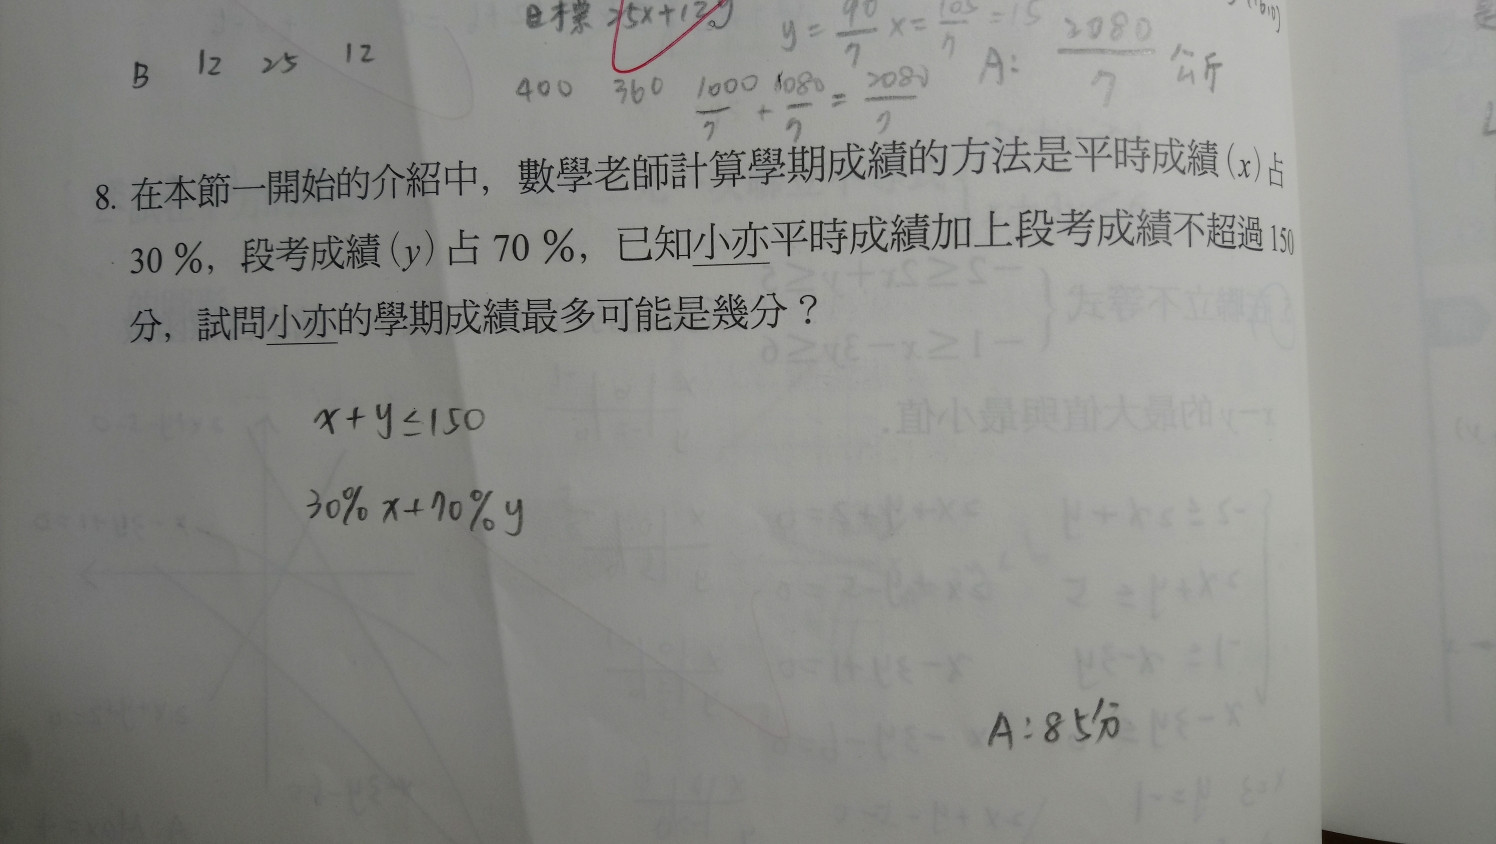 目標 25x+12y
y=90/7 x=105/7=15
A: 2080/7 公斤
B 12 25 12
400 360 1000/7+1080/7=2080/7
8. 在本節一開始的介紹中，數學老師計算學期成績的方法是平時成績(x)占
30 %，段考成績(y)占 70 %，已知小亦平時成績加上段考成績不超過 150
分，試問小亦的學期成績最多可能是幾分？
x+y≤150
30% x+70% y
A:85分